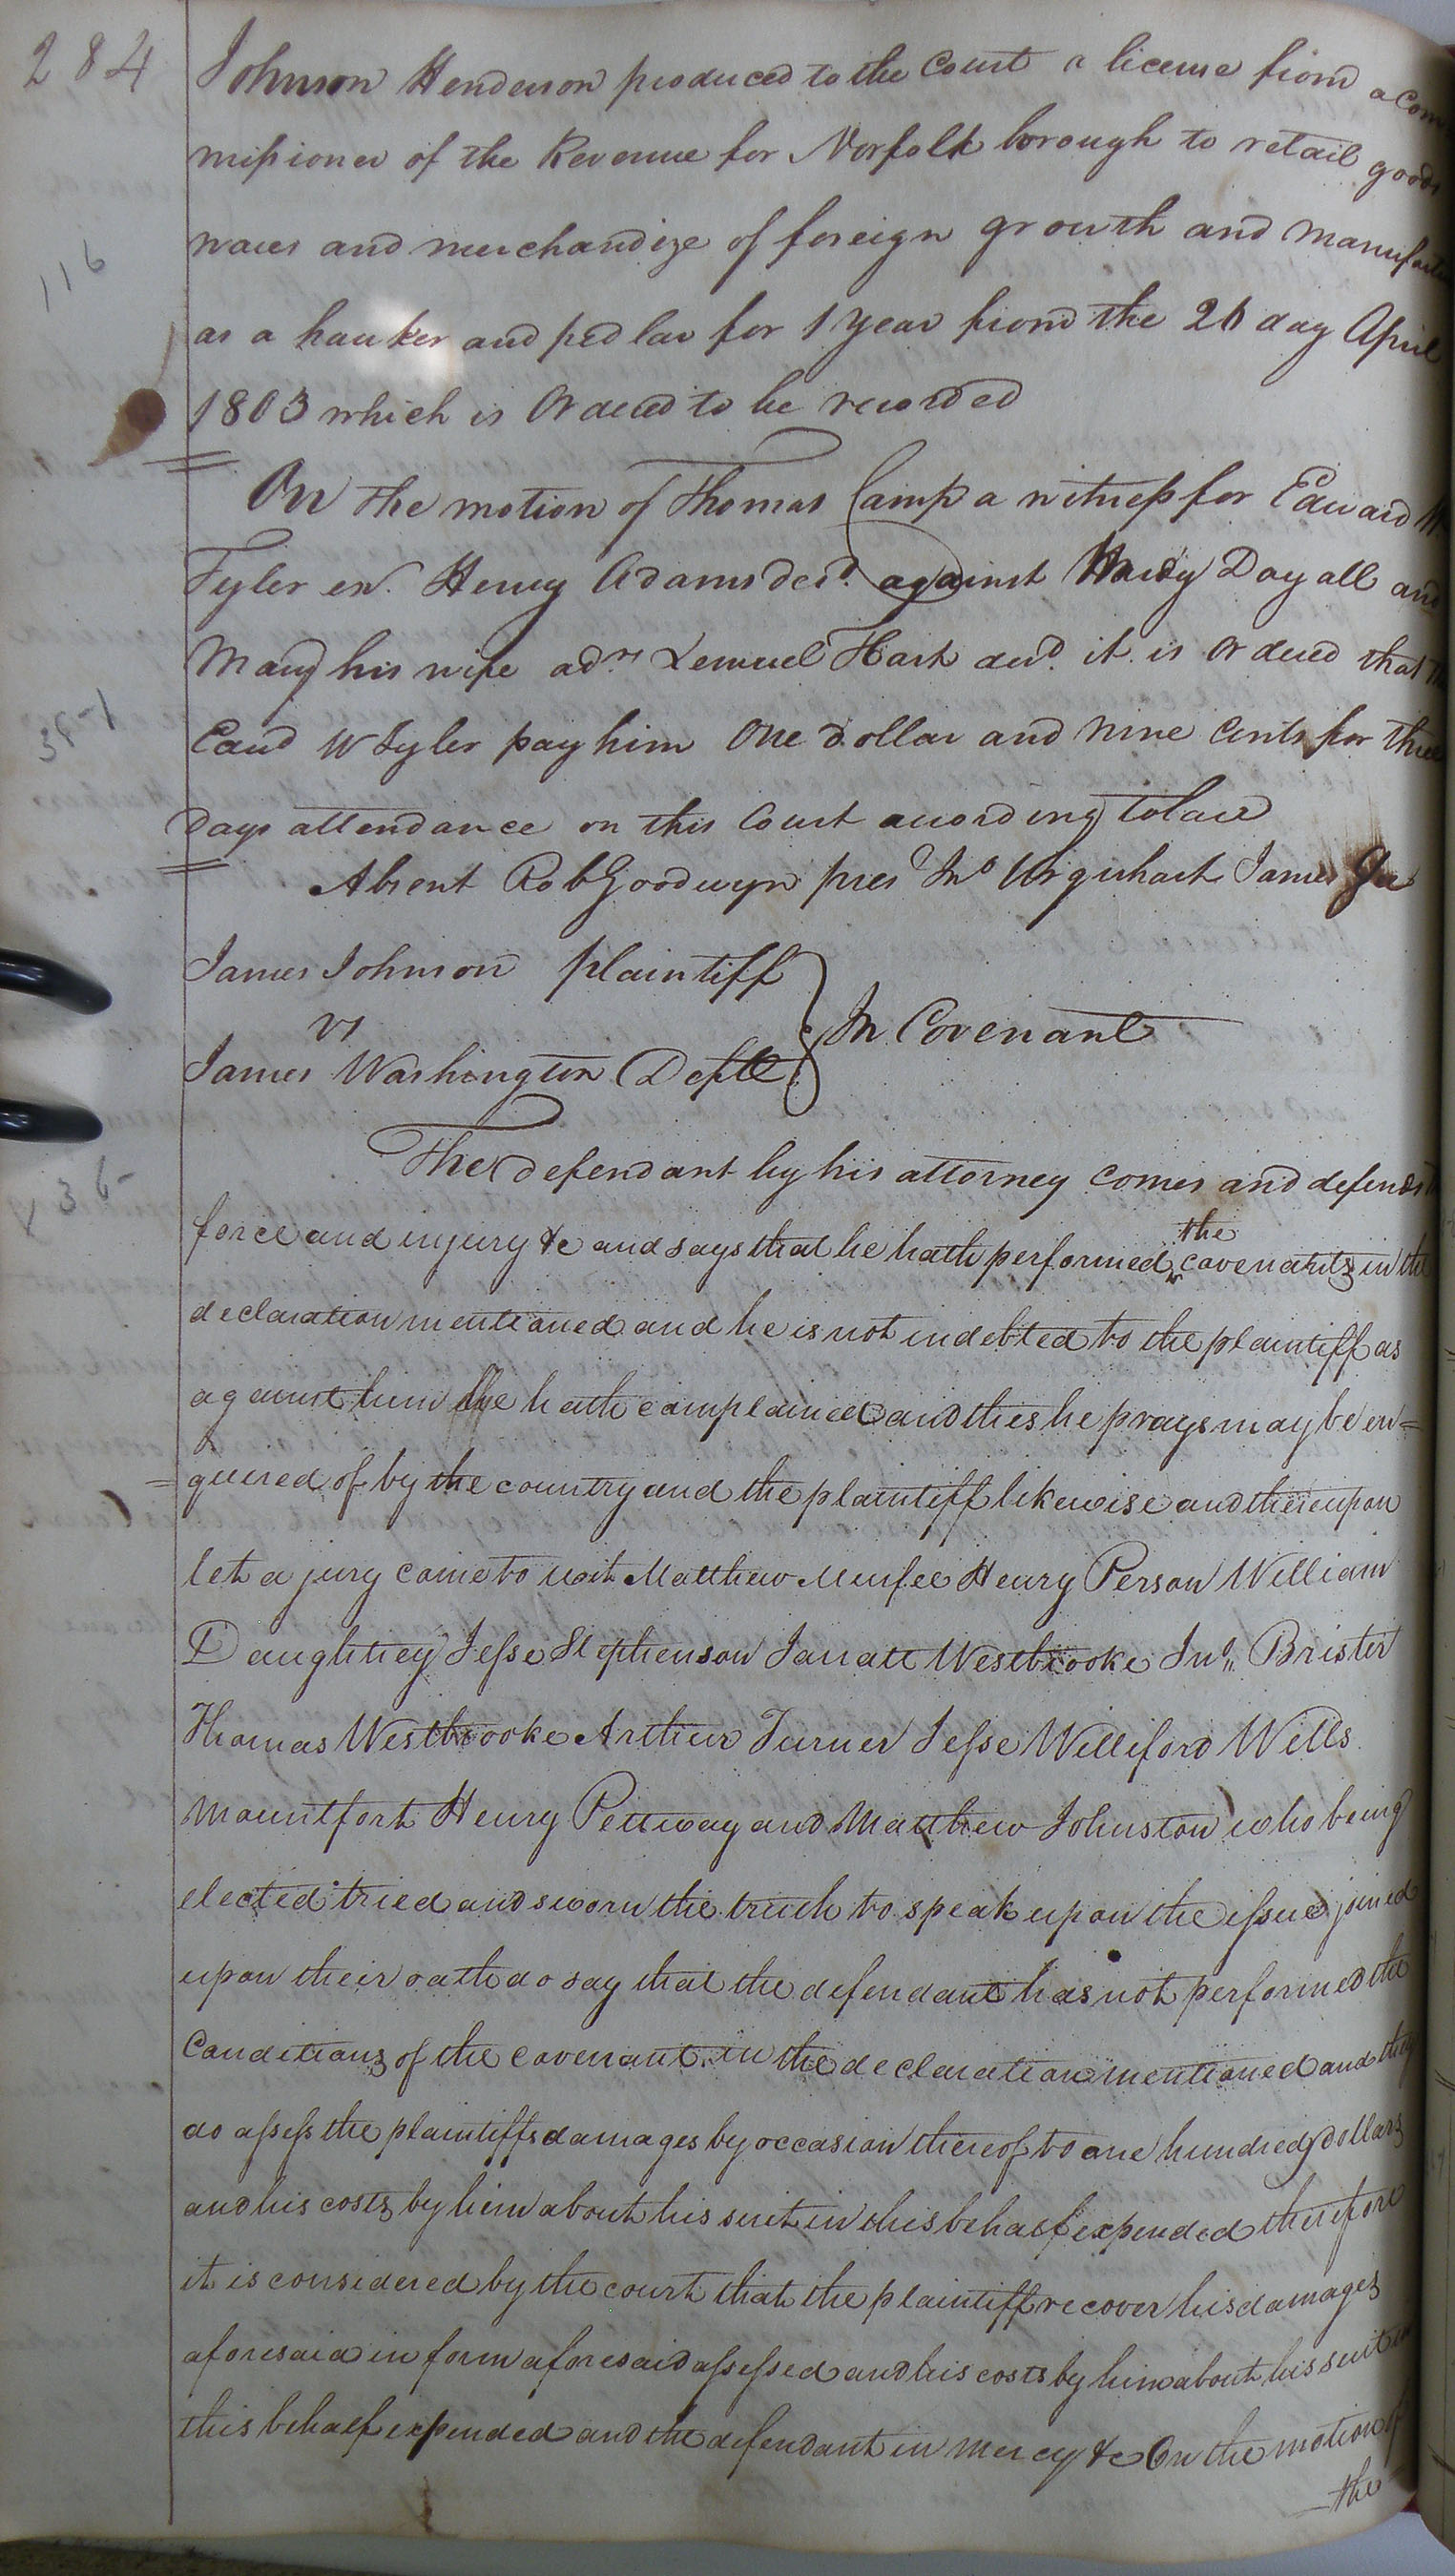 284
Johnson Henderson produced to the Court a license from a Com
missioner of the Revenue for Norfolk borough to retail goods
wares and merchandize of foreign growth and manufact
116
as a hawker and pedlar for 1 year from the 26 day April
1803 which is Ordered to be recorded
On the motion of Thomas Camp a witness for Edward W
Tyler exr. Henry Adams decd. against Hardy Dayall and
Mary his wife admr Lemuel Hart decd. it is Ordered that the
Edwd W Tyler pay him One dollar and nine Cents for three
days attendance on this Court according to law
Absent Rob Goodwyn pres Jno Urquhart James Gee
James Johnson plaintiff
vs
In Covenant
James Washington Deft
The defendant by his attorney comes and defends the
36
force and injury &c and says that he hath performed the covenants in the
declaration mentioned and he is not indebted to the plaintiff as
against him he hath complained and this he prays may be en=
=quired of by the country and the plaintiff likewise and thereupon
let a jury come to wit Matthew Murfee Henry Person William
Daughtrey Jesse Stephenson Jarratt Westbrooke Jno. Brister
Thomas Westbrooke Arthur Turner Jesse Williford Wills
Mountfort Henry Pettway and Matthew Johnston who being
elected tried and sworn the truth to speak upon the issue joined
upon their oath do say that the defendant has not performed the
Conditions of the covenant in the declaration mentioned and they
do assess the plaintiffs damages by occasion thereof to one hundred dollars
and his costs by him about his suit in this behalf expended therefore
it is considered by the court that the plaintiff recover his damages
aforesaid in form aforesaid assessed and his costs by him about his suit in
this behalf expended and the defendant in mercy &c On the motion of
the